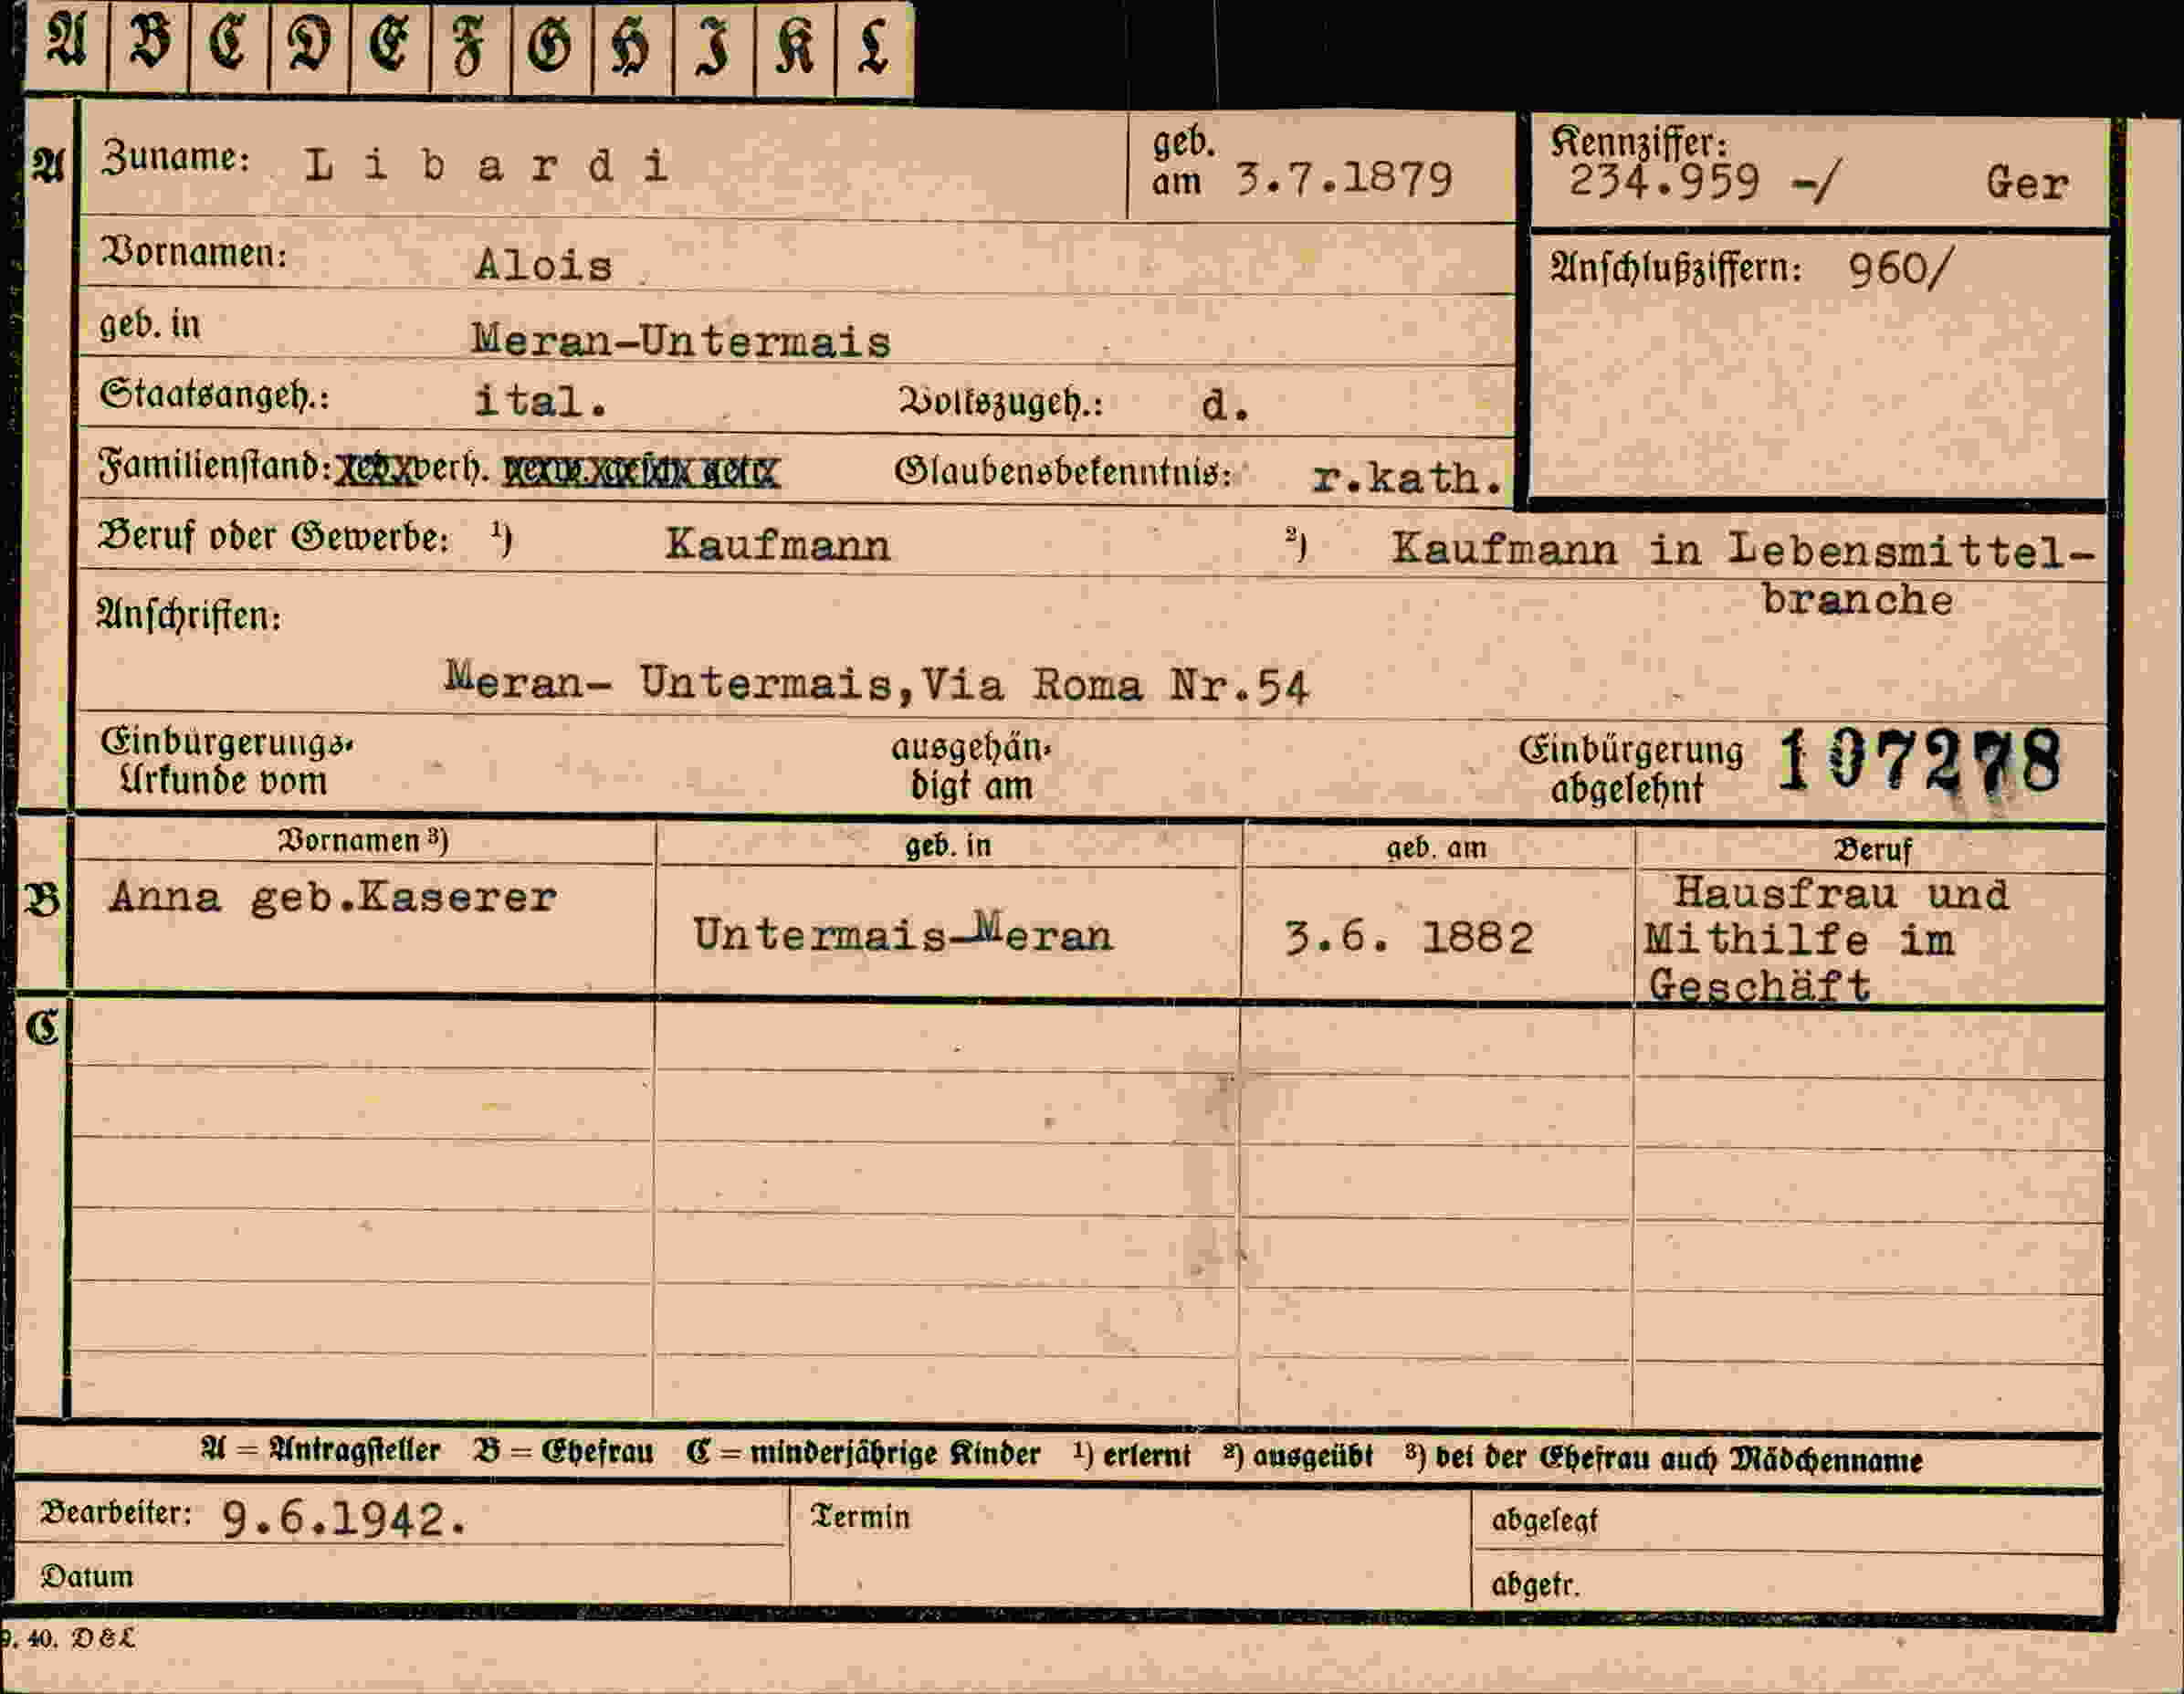 A B C D E F G H I K L
A Zuname: Libardi geb. am 3.7.1879 Kennziffer: 234.959 -/ Ger
Vornamen: Alois Anschlußziffern: 960/
geb. in Meran-Untermais
Staatsangeh.: ital. Volkszugeh.: d.
Familienstand: verh. Glaubensbekenntnis: r.kath.
Beruf oder Gewerbe: ¹) Kaufmann ²) Kaufmann in Lebensmittel-
branche
Anschriften:
Meran- Untermais,Via Roma Nr.54
Einbürgerungs-
Urkunde vom
ausgehän-
digt am
Einbürgerung
abgelehnt
107278
Vornamen ³) geb. in geb. am Beruf
B Anna geb.Kaserer Untermais-Meran 3.6. 1882 Hausfrau und
Mithilfe im
Geschäft
C
A = Antragsteller B = Ehefrau C = minderjährige Kinder ¹) erlernt ²) ausgeübt ³) bei der Ehefrau auch Mädchenname
Bearbeiter: 9.6.1942. Termin abgelegt
Datum abgetr.
9. 40. D & L